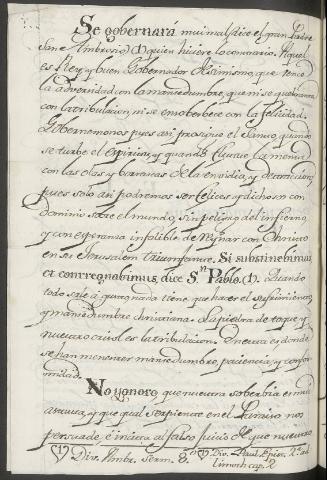 Se gobernará mui mal, dice el gran Padre
San Ambrosio, (1) quien hiciere lo contrario. Aquel
es Rey, y buen Gobernador de si mismo, que vence
la adversidad con la mansedumbre, que ni se quebranta
con la tribulacion, ni se ensoberbece con la felicidad.
Gobernemonos pues asi prosigue el Santo, quando
se turbe el espiritu, y quando fluctue la mente
con las olas y borrascas de la envidia, y detraccion,
pues solo asi podremos ser felices y dichosos con
Dominio sobre el mundo, sin peligro del infierno,
y con esperanza infalible de Reynar con Christo
en su Jerusalem triumfante. Si sustinebimus
et conrregnabimus, dice Sn. Pablo. (1). Quando
todo sale á que nada tiene que hacer el sufrimiento,
y mansedumbre christiana. La piedra de toque y
nuestro crisol es la tribulacion. En esta es donde
se han menester mansedumbre, paciencia, y confor
midad.
No ygnoro, que nuestra soberbia en mil
astucias, y que qual serpiente en el Paraiso nos
persuade, é incita al falso juicio de que nuestro
(1) Div. Ambr. Serm. 8. (1) Div. Paul. Epist. 2ª ad
Timoth cap. 2